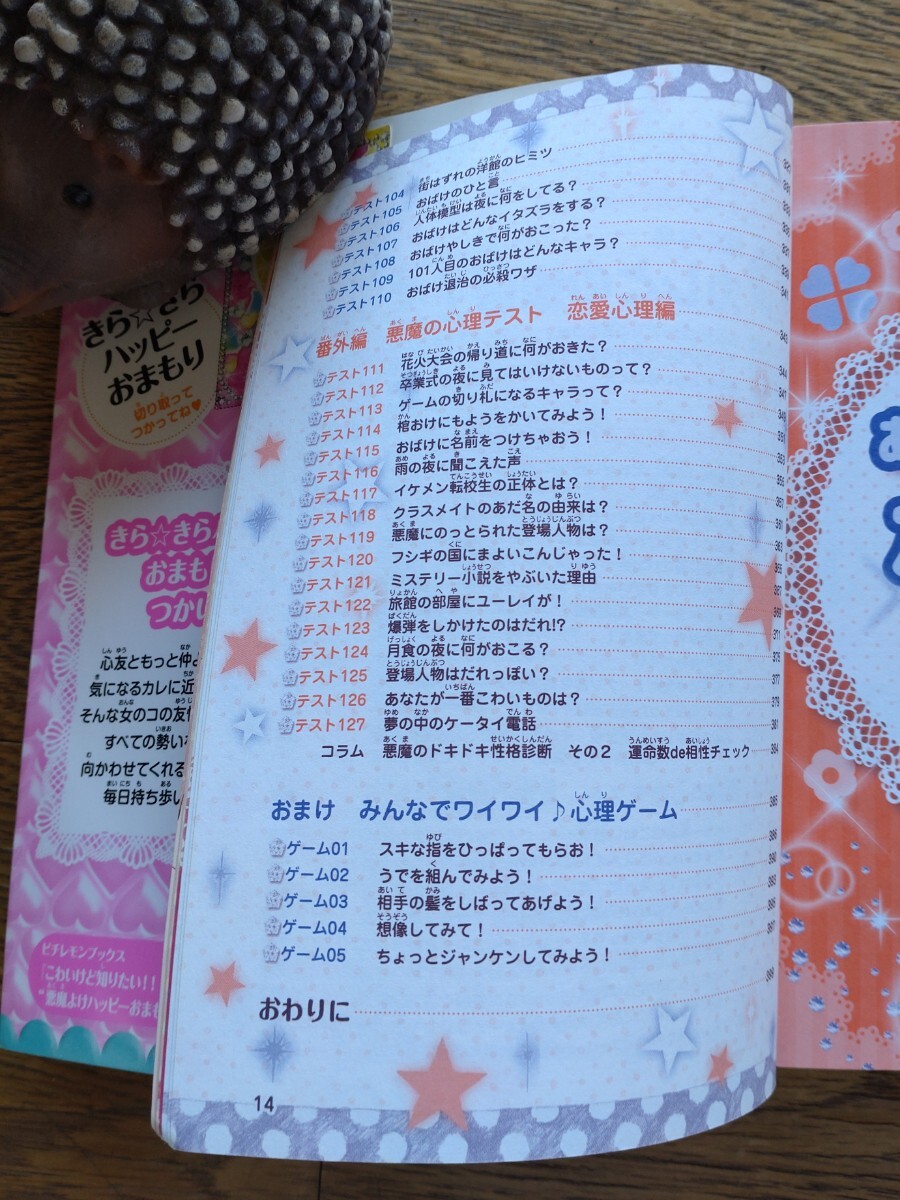 テスト104 街はずれの洋館のヒミツ
テスト105 おばけのひと言
テスト106 人体模型は夜に何をしてる?
テスト107 おばけはどんなイタズラをする?
テスト108 おばけやしきで何がおこった?
テスト109 101人目のおばけはどんなキャラ?
テスト110 おばけ退治の必殺ワザ 341
番外編 悪魔の心理テスト 恋愛心理編 343
テスト111 花火大会の帰り道に何がおきた? 344
テスト112 卒業式の夜に見てはいけないものって? 347
テスト113 ゲームの切り札になるキャラって? 349
テスト114 棺おけにもようをかいてみよう! 351
テスト115 おばけに名前をつけちゃおう! 353
テスト116 雨の夜に聞こえた声 355
テスト117 イケメン転校生の正体とは?
テスト118 クラスメイトのあだ名の由来は? 361
テスト119 悪魔にのっとられた登場人物は? 363
テスト120 フシギの国にまよいこんじゃった! 365
テスト121 ミステリー小説をやぶいた理由 367
テスト122 旅館の部屋にユーレイが! 369
テスト123 爆弾をしかけたのはだれ!? 371
テスト124 月食の夜に何がおこる? 375
テスト125 登場人物はだれっぽい? 377
テスト126 あなたが一番こわいものは? 379
テスト127 夢の中のケータイ電話 381
コラム 悪魔のドキドキ性格診断 その2 運命数de相性チェック 384
おまけ みんなでワイワイ♪心理ゲーム 385
ゲーム01 スキな指をひっぱってもらお! 386
ゲーム02 うでを組んでみよう! 390
ゲーム03 相手の髪をしばってあげよう! 393
ゲーム04 想像してみて! 395
ゲーム05 ちょっとジャンケンしてみよう! 397
おわりに 399
14
きら☆きら
ハッピー
おまもり
切り取って
つかってね♥
きら☆きら
おまも
つかい
心友ともっと仲よ
気になるカレに近
そんな女のコの友情
すべての勢いを
向かわせてくれる
毎日持ち歩い
ピチレモンブックス
『こわいけど知りたい!!
"悪魔よけハッピーおまも